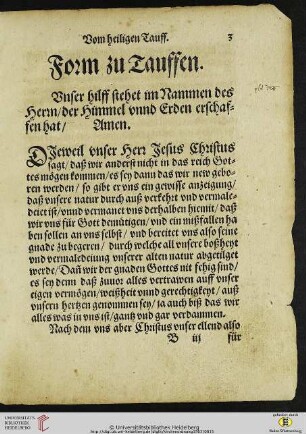 Vom heiligen Tauff. 3
Form zu Tauffen.
Vnser hilff stehet im Nammen des
Herrn/der Himmel vnnd Erden erschaf-
fen hat/ Amen.
DJeweil vnser Herr Jesus Christus
sagt/ daß wir anderst nicht in das reich Got-
tes mögen kommen/es sey dann das wir new gebo-
ren werden/ so gibt er vns ein gewisse anzeigung/
daß vnsere natur durch auß verkehrt vnd vermale-
deiet ist/vnnd vermanet vns derhalben hiemit/ daß
wir vns für Gott demütigen/ vnd ein mißfallen ha
ben sollen an vns selbst/ vnd bereitet vns also seine
gnade zu begeren/ durch welche all vnsere boßheyt
vnd vermaledeiung vnserer alten natur abgetilget
werde/Dañ wir der gnaden Gottes nit fehig sind/
es sey denn daß zuuor alles vertrawen auff vnser
eigen vermögen/weißheit vnnd gerechtigkeyt/ auß
vnsern hertzen genommen sey/ ja auch biß das wir
alles was in vns ist/gantz vnd gar verdammen.
Nach dem vns aber Christus vnser ellend also
B iij für
UNIVERSITÄTS-
BIBLIOTHEK
HEIDELBERG
© Universitätsbibliothek Heidelberg